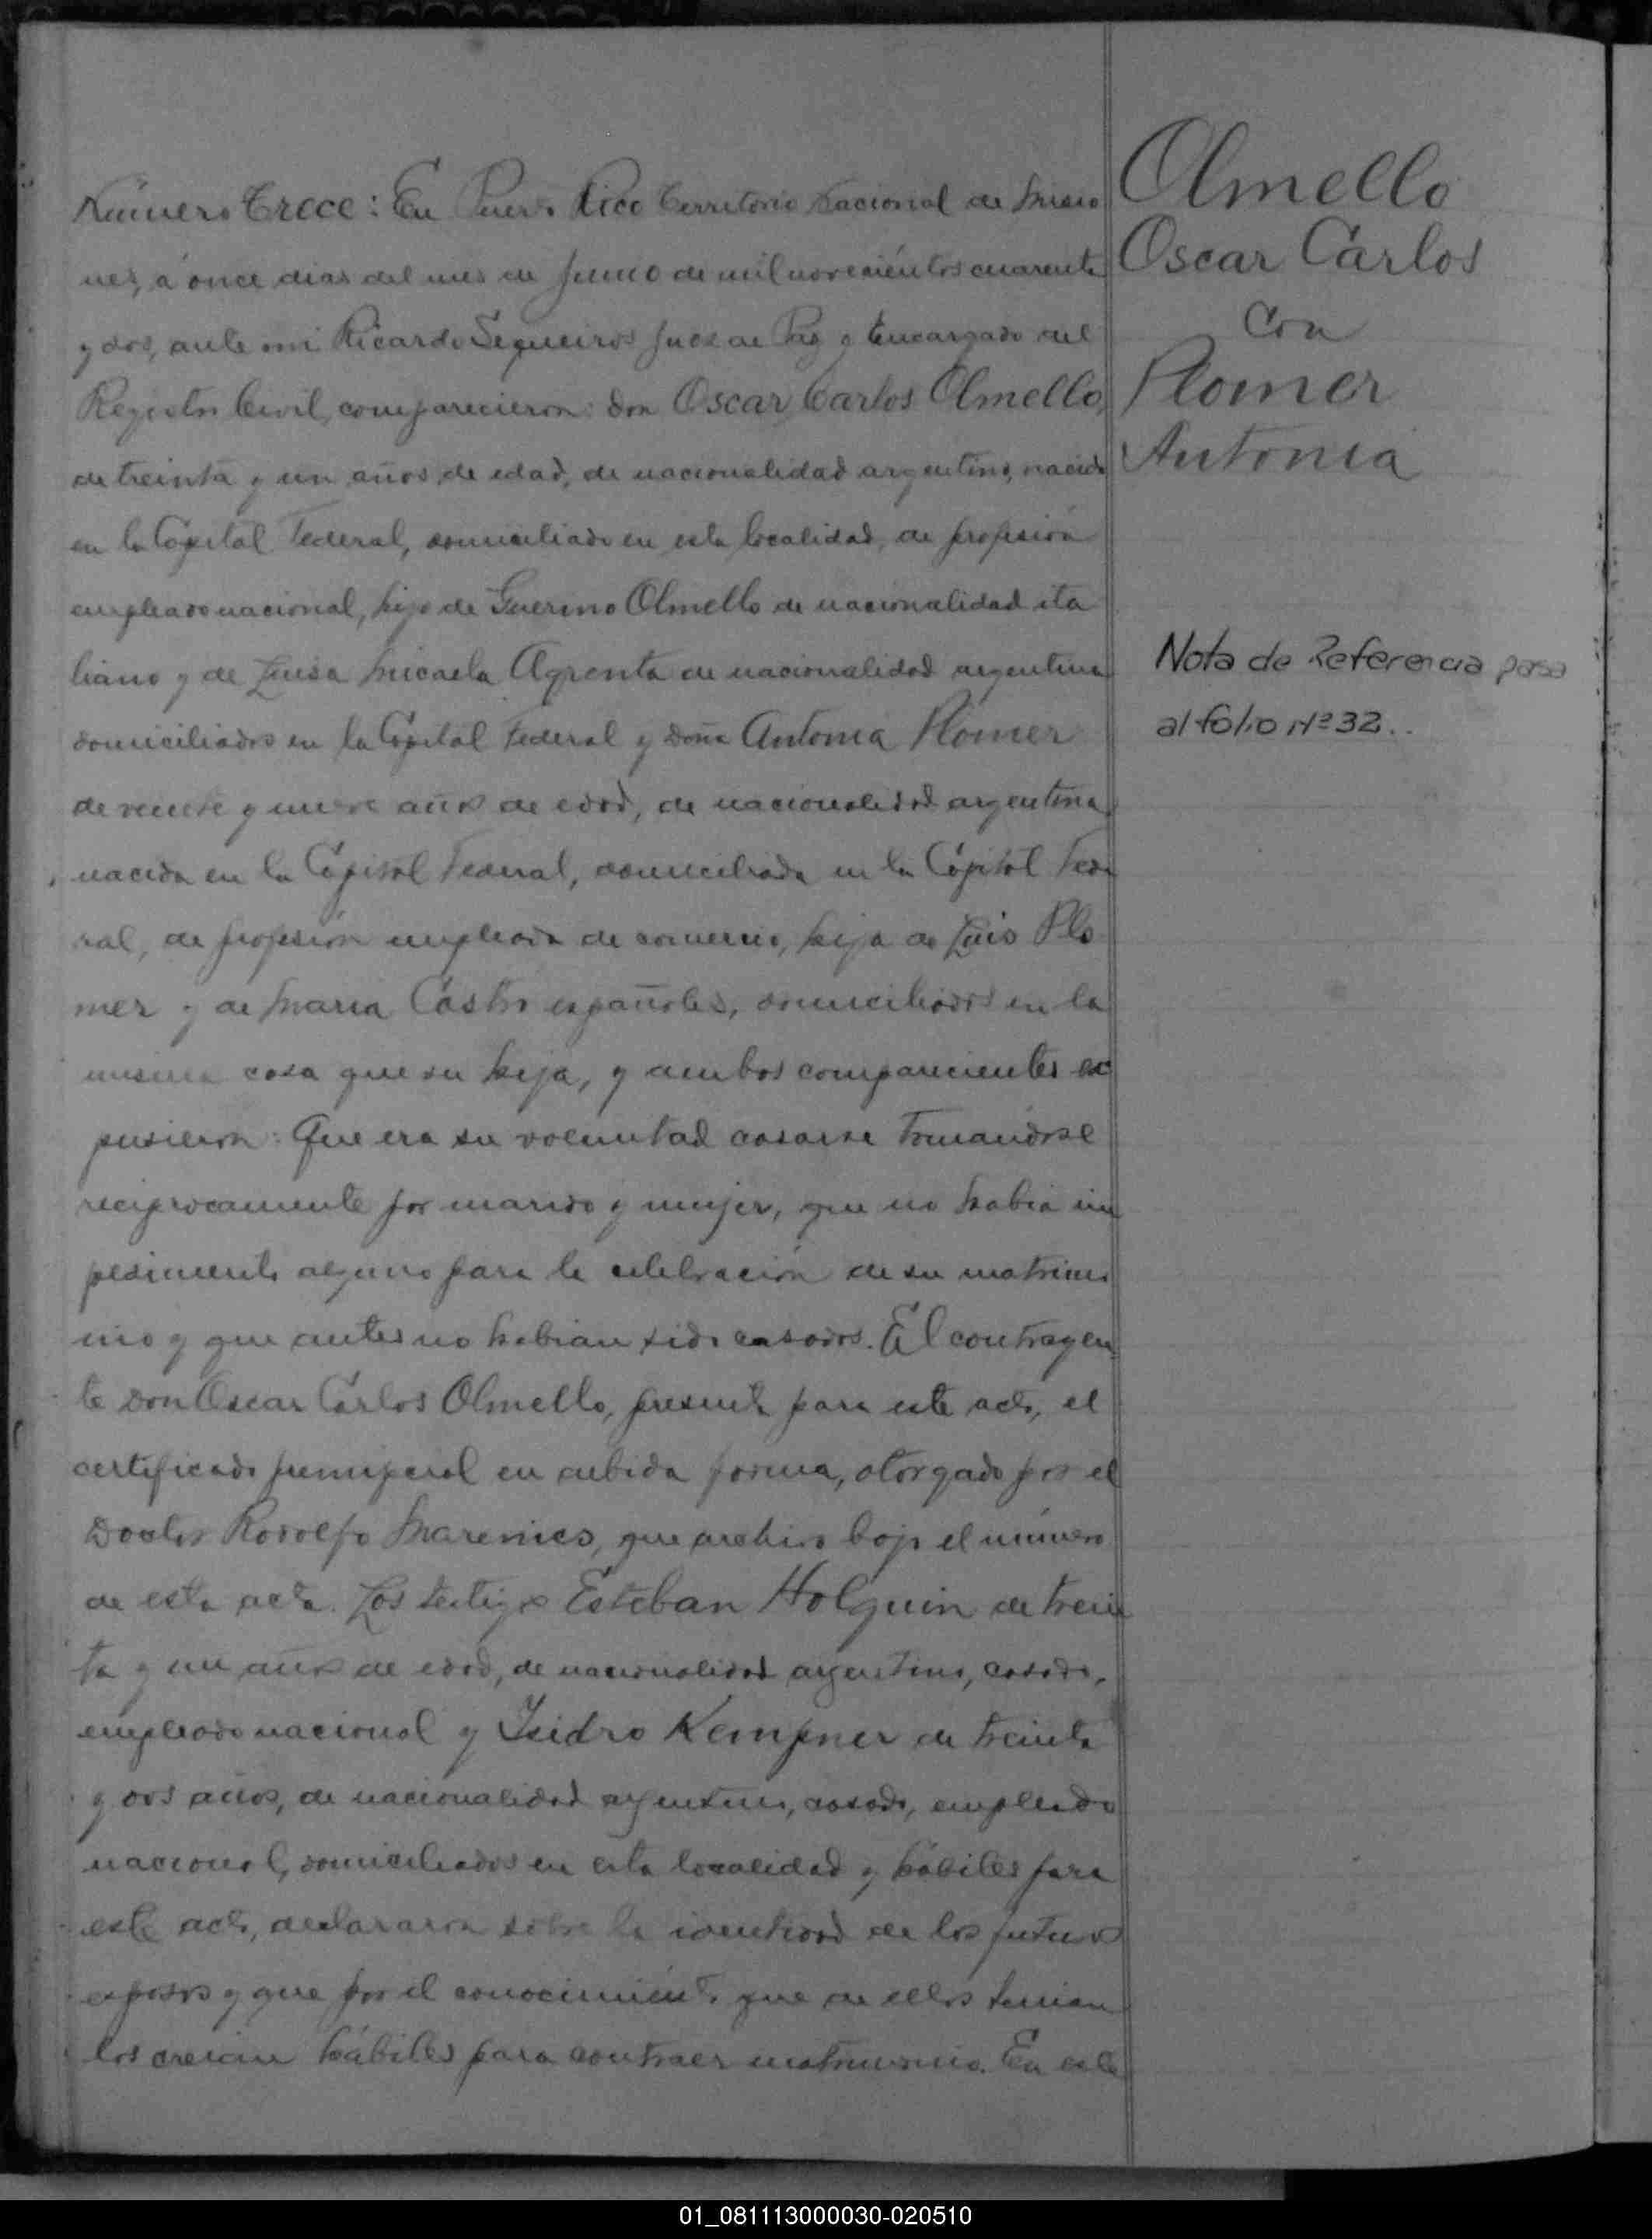 Número Trece: En Puerto Rico Territorio Nacional de Misio
nes, á once dias del mes de Junio de mil novecientos cuarenta
y dos, ante mi Ricardo Sequeiros Juez de Paz y Encargado del
Registro Civil, comparecieron: don Oscar Carlos Olmello,
de treinta y un años de edad, de nacionalidad argentino, nacido
en la Capital Federal, domiciliado en esta localidad, de profesión
empleado nacional, hijo de Guerino Olmello de nacionalidad ita
liano y de Luisa Micaela Agrenta de nacionalidad argentina
domiciliados en la Capital Federal y doña Antonia Plomer
de veinte y nueve años de edad, de nacionalidad argentina,
nacida en la Capital Federal, domiciliada en la Capital Fede
ral, de profesión empleada de comercio, hija de Luis Plo
mer y de Maria Castro españoles, domiciliados en la
misma casa que su hija, y ambos comparecientes ex
pusieron: Que era su voluntad casarse tomandose
reciprocamente por marido y mujer, que no habia im
pedimento alguno para la celebración de su matrimo
nio y que antes no habian sido casados. El contrayen
te don Oscar Carlos Olmello, presenta para este acto, el
certificado prenupcial en debida forma, otorgado por el
Doctor Rodolfo que archivo bajo el número
de esta acta. Los testigos Esteban Holguin de trein
ta y un años de edad, de nacionalidad argentino, casado,
empleado nacional y Isidro Kempner de treinta
y dos años, de nacionalidad argentino, casado, empleado
nacional, domiciliados en esta localidad y hábiles para
este acto, declararon sobre la identidad de los futuros
esposos y que por el conocimiento que de ellos tenian
los creian hábiles para contraer matrimonio. En este
Olmello
Oscar Carlos
Con
Plomer
Antonia
Nota de Referencia pasa
al folio Nº 32..
01_081113000030-020510